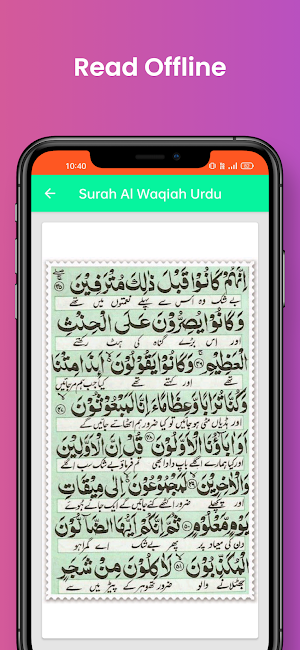 Read Offline
10:40
Surah Al Waqiah Urdu
اِنَّهُمْ كَانُوْا قَبْلَ ذٰلِكَ مُتْرَفِيْنَ ۝۴۵
بے شک وہ اس سے پہلے نعمتوں میں تھے
وَكَانُوْا يُصِرُّوْنَ عَلَى الْحِنْثِ
اور اس بڑے گناہ کی ہٹ رکھتے
الْعَظِيْمِ ۝۴۶ وَكَانُوْا يَقُوْلُوْنَ اَئِذَا مِتْنَا
تھے اور کہتے تھے کیا جب ہم مرجائیں
وَكُنَّا تُرَابًا وَّعِظَامًا ءَاِنَّا لَمَبْعُوْثُوْنَ ۝۴۷
اور ہڈیاں مٹی ہو جائیں تو کیا ضرور ہم اٹھائے جائیں گے
اَوَاٰبَآؤُنَا الْاَوَّلُوْنَ ۝۴۸ قُلْ اِنَّ الْاَوَّلِيْنَ
اور کیا ہمارے اگلے باپ دادا بھی تم فرماؤ بے شک سب اگلے
وَالْاٰخِرِيْنَ ۝۴۹ لَمَجْمُوْعُوْنَ اِلٰى مِيْقَاتِ
اور پچھلے ضرور اکٹھے کئے جائیں گے ایک جانے ہوئے
يَوْمٍ مَّعْلُوْمٍ ۝۵۰ ثُمَّ اِنَّكُمْ اَيُّهَا الضَّآلُّوْنَ
دن کی میعاد پر پھر بے شک اے گمراہو
الْمُكَذِّبُوْنَ ۝۵۱ لَاٰكِلُوْنَ مِنْ شَجَرٍ
جھٹلانے والو ضرور تھوہر کے پیڑ میں سے